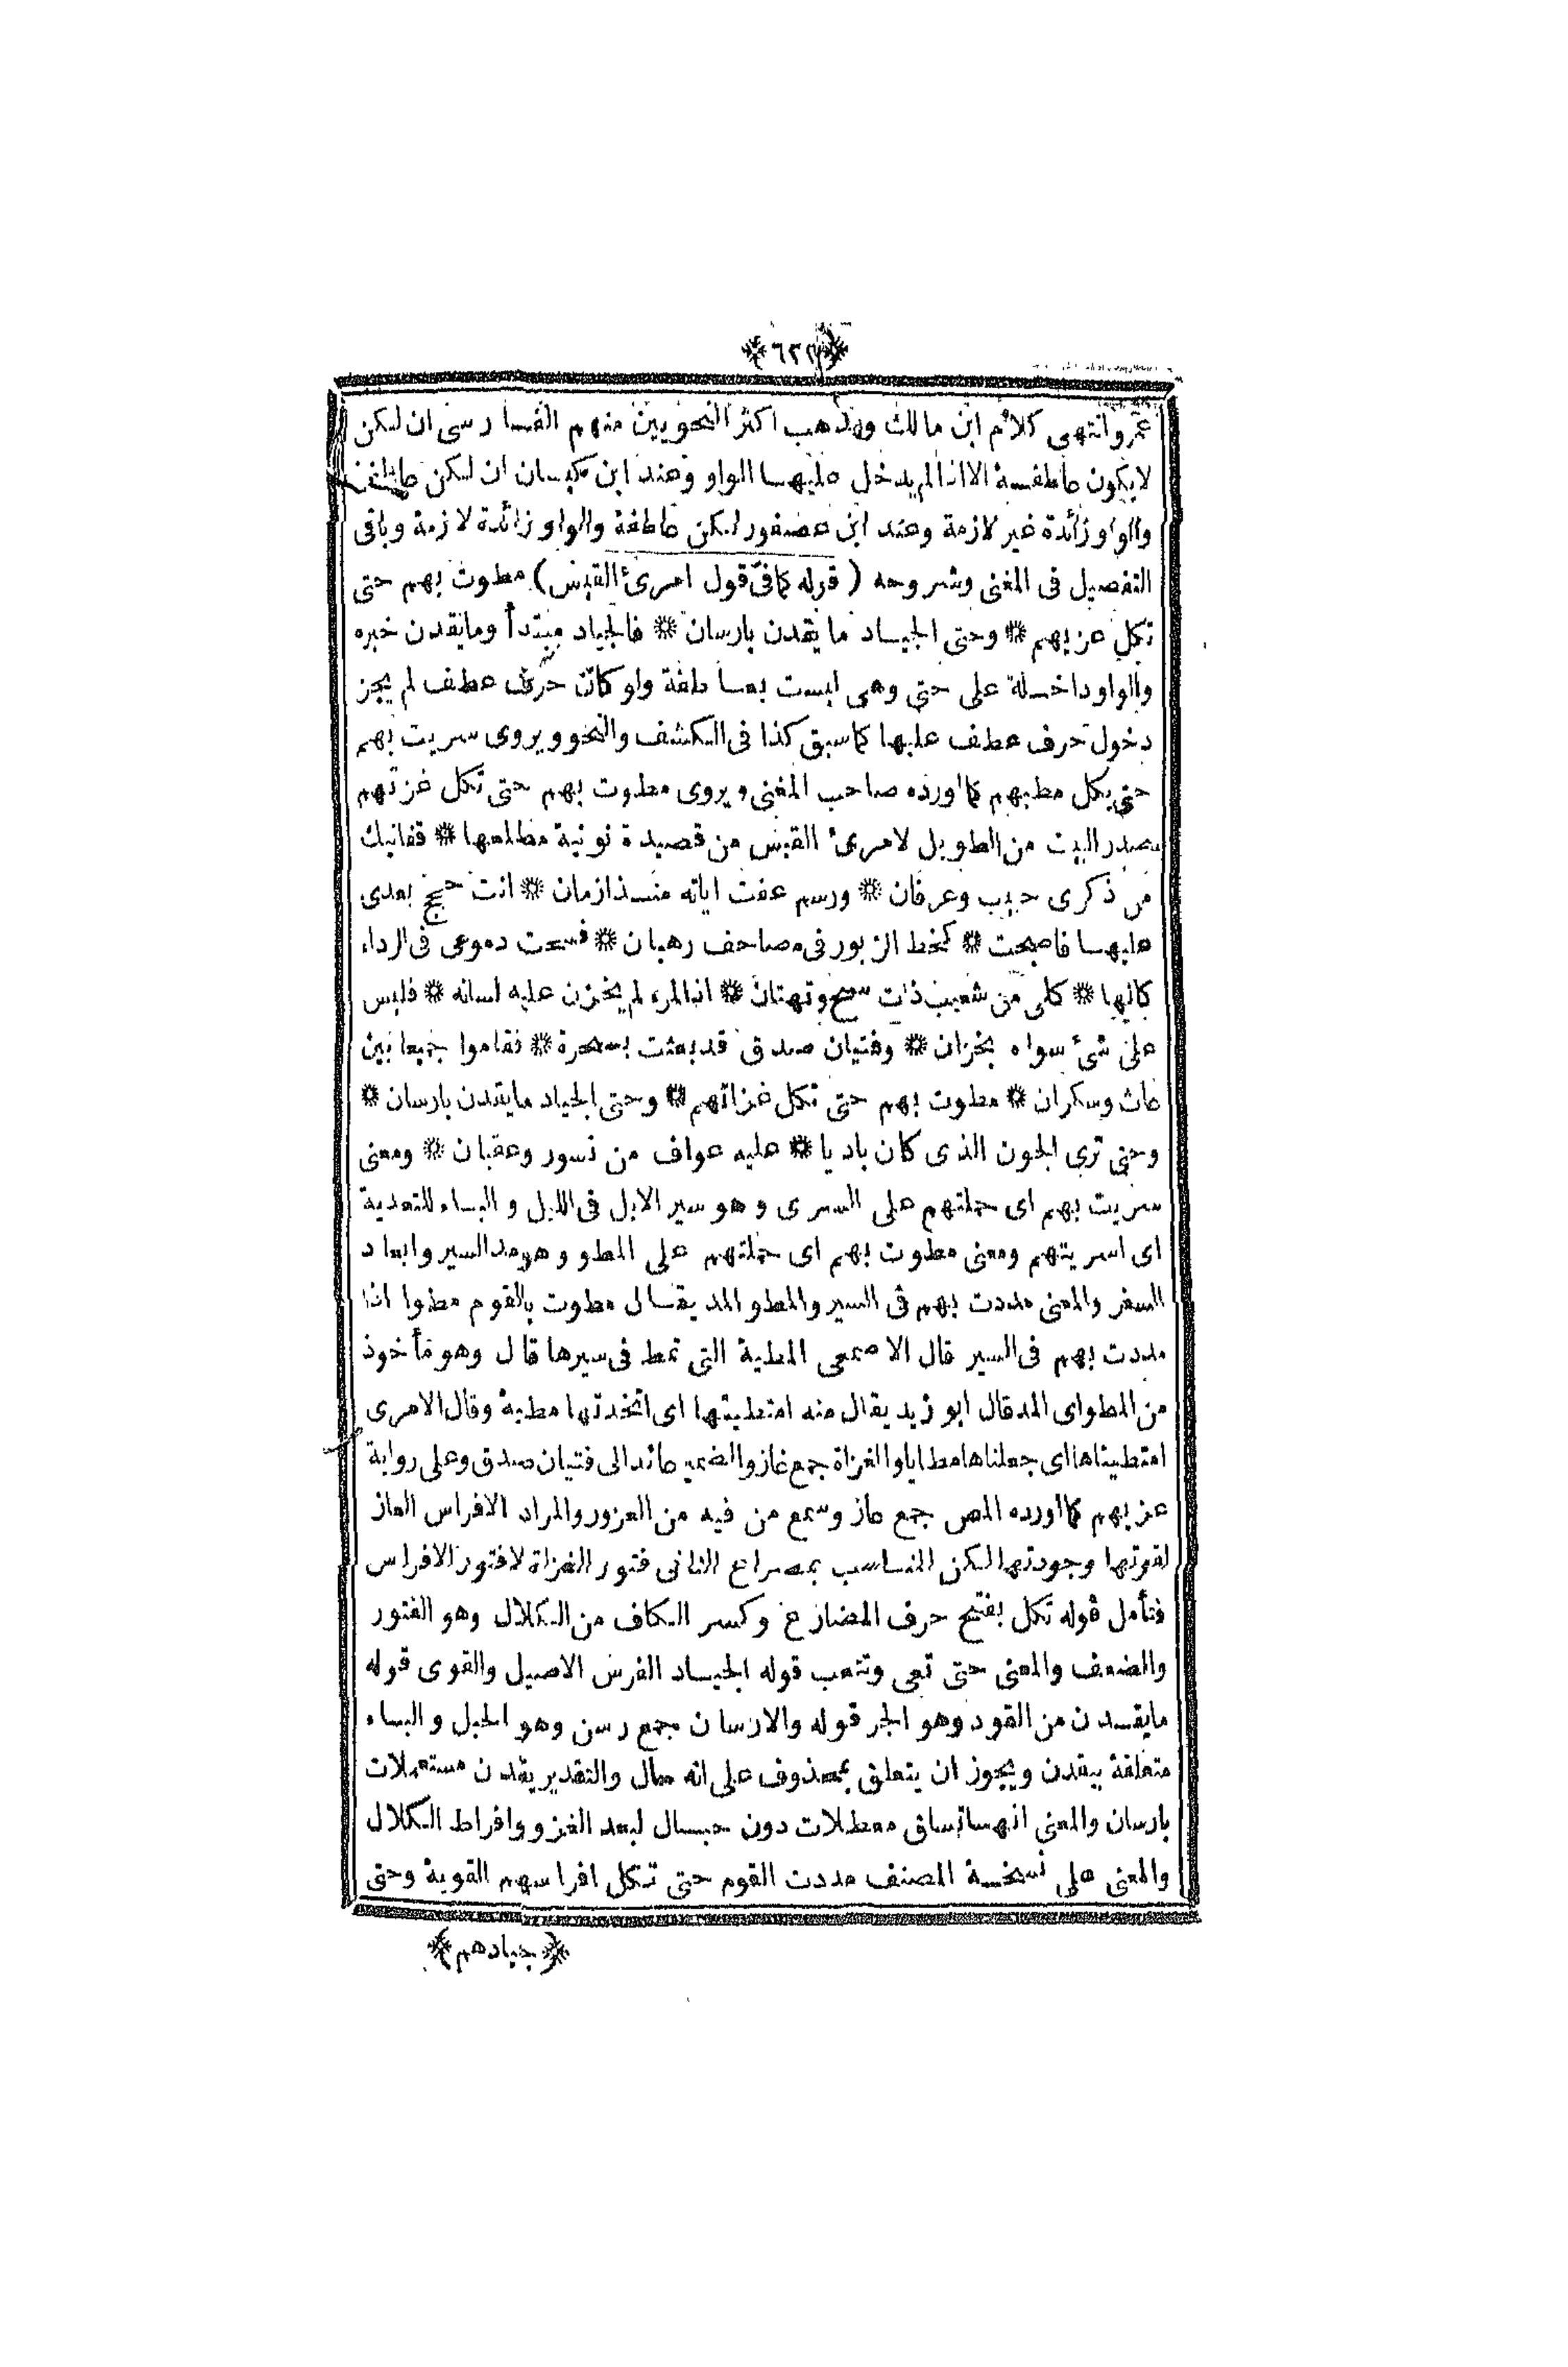 عمرو انتهى كلام ابن مالك ومذهب اكثر النحويين منهم الفسا رسى ان لكن
لايكون عاطفة الا اذا لم يدخل عليها الواو وعند ابن كيسان ان لكن عاطفة
والواو زائدة غير لازمة وعند ابن عصفور لكن عاطفة والواو زائدة لازمة وباقى
التفصيل فى المغنى وشروحه ( قوله كما فى قول امرئ القيس ) مطوت بهم حتى
تكل عزيهم ❊ وحتى الجياد ما يقدن بارسان ❊ فالجياد مبتدأ ومايقدن خبره
والواو داخلة على حتى وهى ليست بعاطفة ولو كانت حرف عطف لم يجز
دخول حرف عطف عليها كما سبق كذا فى الكشف والنحو ويروى سريت بهم
حتى يكل مطيهم كما اورده صاحب المغنى ويروى مطوت بهم حتى تكل غزتهم
صدر البيت من الطويل لامرئ القيس من قصيدة نونية مطلعها ❊ قفانبك
من ذكرى حبيب وعرفان ❊ ورسم عفت اياته منذ ازمان ❊ اتت حجج بعدى
عليها فاصبحت ❊ كخط الزبور فى مصاحف رهبان ❊ فسحت دموعى فى الرداء
كانها ❊ كلى من شعيب ذات سح وتهتان ❊ اذا المرء لم يخزن عليه لسانه ❊ فليس
على شئ سواه بخزان ❊ وفتيان صدق قد بعثت بسحرة ❊ فقاموا جميعا بين
عاث وسكران ❊ مطوت بهم حتى تكل غزاتهم ❊ وحتى الجياد مايقدن بارسان ❊
وحتى ترى الجون الذى كان باديا ❊ عليه عواف من نسور وعقبان ❊ ومعنى
سريت بهم اى حملتهم على السرى وهو سير الابل فى الليل و الباء للتعدية
اى اسريتهم ومعنى مطوت بهم اى حملتهم على المطو وهو مد السير وابعاد
السفر والمعنى مددت بهم فى السير والمطو المد يقال مطوت بالقوم مطوا اذا
مددت بهم فى السير قال الاصمعى المطية التى تمط فى سيرها قال وهو مأخوذ
من المطو اى المد قال ابو زيد يقال منه امتطيتها اى اتخذتها مطية وقال الامرى
امتطيناها اى جعلناها مطايا والغزاة جمع غاز والضمير عائد الى فتيان صدق وعلى رواية
عزيهم كما اورده المص جمع عاز وسمع من فيه من العزور والمراد الافراس العاز
لقوتها وجودتها لكن المناسب بمصراع الثانى فتور الغزاة لافتور الافراس
فتأمل قوله تكل بفتح حرف المضارع وكسر الكاف من الكلال وهو الفتور
والضعف والمعنى حتى تعى وتتعب قوله الجياد الفرس الاصيل والقوى قوله
مايقدن من القود وهو الجر قوله والارسان جمع رسن وهو الحبل و الباء
متعلقة بيقدن ويجوز ان يتعلق بمحذوف على انه حال والتقدير يقدن مستعملات
بارسان والمعنى انها تساق معطلات دون حبال لبعد الغزو وافراط الكلال
والمعنى على نسخة المصنف مددت القوم حتى تكل افراسهم القوية وحتى
❊ جيادهم ❊